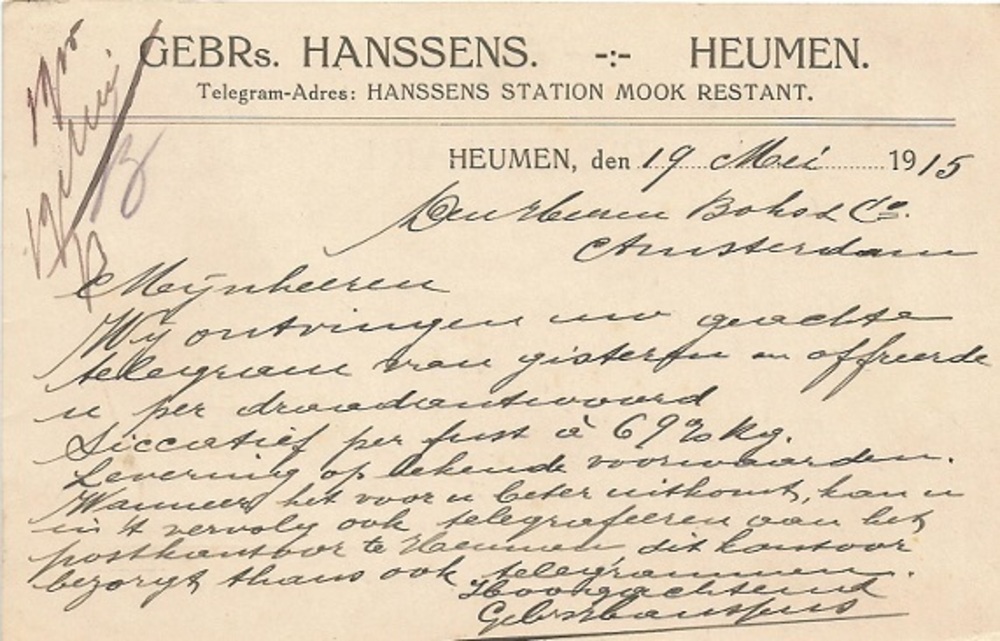 GEBRs. HANSSENS. -:- HEUMEN.
Telegram-Adres: HANSSENS STATION MOOK RESTANT.
HEUMEN, den 19 Mei 1915
Den Heeren Bohs & Co.
Amsterdam
Mijnheeren
Wij ontvingen uw geachte
telegram van gisteren en offreerde
u per draadantwoord
Siccatief per fust à 69 % kg.
Levering op bekende voorwaarden.
Wanneer het voor u beter uitkomt, kan u
in 't vervolg ook telegrafeeren aan het
postkantoor te Heumen, dit kantoor
bezorgt thans ook telegrammen.
Hoogachtend
Gebrs Hanssens